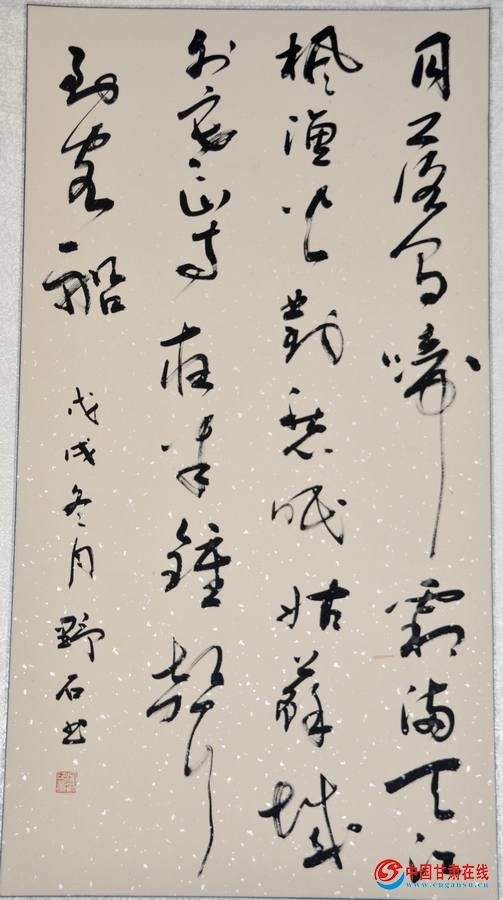 月落烏啼霜滿天江
楓漁火對愁眠姑蘇城
外寒山寺夜半鐘聲
到客船
戊戌冬月野石书
中国甘肃在线
www.cngansu.cn